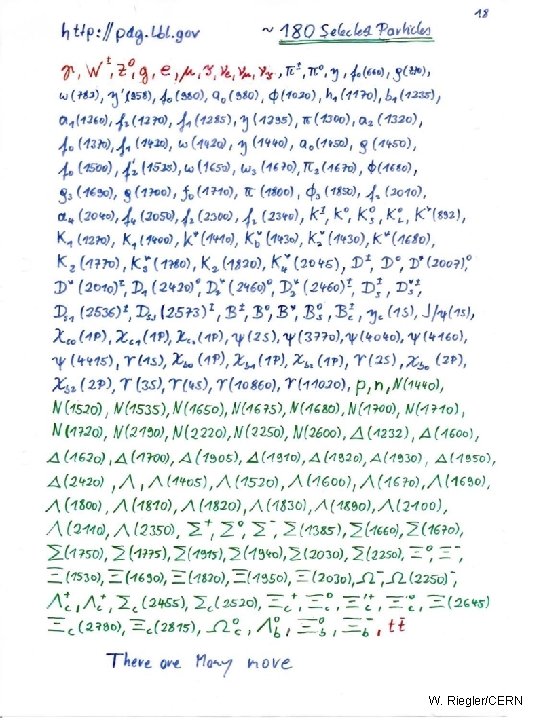 18
http://pdg.lbl.gov ~ 180 Selected Particles
γ, W±, Z⁰, g, e, μ, τ, νe, νμ, ντ, π±, π⁰, η, f₀(660), ρ(770),
ω(782), η'(958), f₀(980), a₀(980), ϕ(1020), h₁(1170), b₁(1235),
a₁(1260), f₂(1270), f₁(1285), η(1295), π(1300), a₂(1320),
f₀(1370), f₁(1420), ω(1420), η(1440), a₀(1450), ρ(1450),
f₀(1500), f₂'(1525), ω(1650), ω₃(1670), π₂(1670), ϕ(1680),
ρ₃(1690), ρ(1700), f₀(1710), π(1800), ϕ₃(1850), f₂(2010),
a₄(2040), f₄(2050), f₂(2300), f₂(2340), K±, K⁰, K⁰s, K⁰L, K*(892),
K₁(1270), K₁(1400), K*(1410), K₀*(1430), K₂*(1430), K*(1680),
K₂(1770), K₃*(1780), K₂(1820), K₄*(2045), D±, D⁰, D*(2007)⁰,
D*(2010)±, D₁(2420)⁰, D₂*(2460)⁰, D₂*(2460)±, Ds±, Ds*±,
Ds1(2536)±, DsJ(2573)±, B±, B⁰, B*, Bs⁰, Bc±, ηc(1S), J/ψ(1S),
χc0(1P), χc1(1P), χc2(1P), ψ(2S), ψ(3770), ψ(4040), ψ(4160),
ψ(4415), ϒ(1S), χb0(1P), χb1(1P), χb2(1P), ϒ(2S), χb0(2P),
χb2(2P), ϒ(3S), ϒ(4S), ϒ(10860), ϒ(11020), p, n, N(1440),
N(1520), N(1535), N(1650), N(1675), N(1680), N(1700), N(1710),
N(1720), N(2190), N(2220), N(2250), N(2600), Δ(1232), Δ(1600),
Δ(1620), Δ(1700), Δ(1905), Δ(1910), Δ(1920), Δ(1930), Δ(1950),
Δ(2420), Λ, Λ(1405), Λ(1520), Λ(1600), Λ(1670), Λ(1690),
Λ(1800), Λ(1810), Λ(1820), Λ(1830), Λ(1890), Λ(2100),
Λ(2110), Λ(2350), Σ⁺, Σ⁰, Σ⁻, Σ(1385), Σ(1660), Σ(1670),
Σ(1750), Σ(1775), Σ(1915), Σ(1940), Σ(2030), Σ(2250), Ξ⁰, Ξ⁻,
Ξ(1530), Ξ(1690), Ξ(1820), Ξ(1950), Ξ(2030), Ω⁻, Ω(2250)⁻,
Λc⁺, Λc⁺, Σc(2455), Σc(2520), Ξc⁺, Ξc⁰, Ξc'⁺, Ξc'⁰, Ξ(2645)
Ξc(2790), Ξc(2815), Ωc⁰, Λb⁰, Ξb⁰, Ξb⁻, tt̄
There are Many more
W. Riegler/CERN